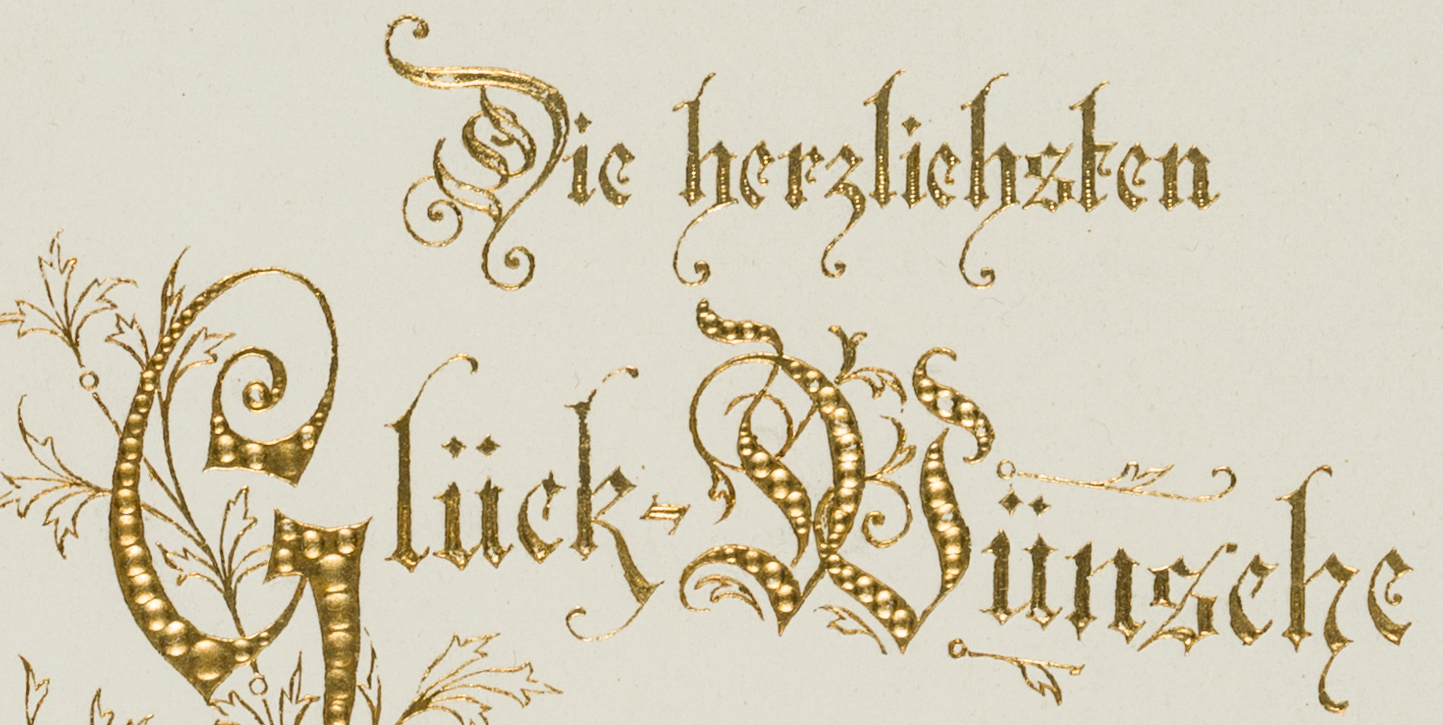 Die herzlichsten
Glück-Wünsche